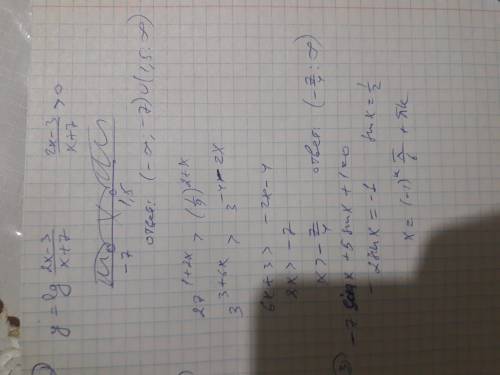 y = lg 2x-3/x+7    2x-3/x+7 > 0
-7    1,5
ответ: (-∞; -7)∪(1,5; ∞)
27^1+2x > (1/9)^2+x
3^3+6x > 3^-4-2x
6x+3 > -2x-4
8x > -7
x > -7/8    ответ: (-7/8; ∞)
3) -7 sin x + 5 sin x + 1 = 0
-2 sin x = -1    sin x = 1/2
x = (-1)^k π/6 + πk